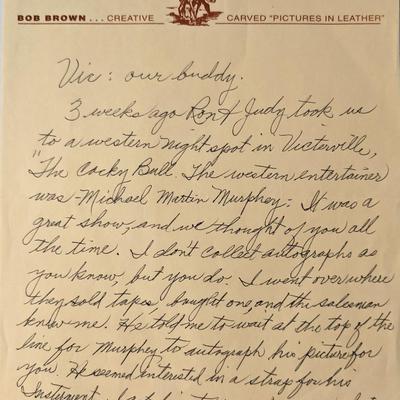 BOB BROWN . . . CREATIVE CARVED "PICTURES IN LEATHER"
Vic: our buddy.
3 weeks ago Ron & Judy took us
to a western night spot in Victerville,
"The Cocky Bull. The western entertainer
was - Michael Martin Murphey: It was a
great show, and we thought of you all
the time. I don't collect autographs as
you know, but you do. I went over where
they sold tapes, bought one, and the salesman
knew me. He told me to wait at the top of the
line for Murphey to autograph his picture for
you. He seemed interested in a strap for his